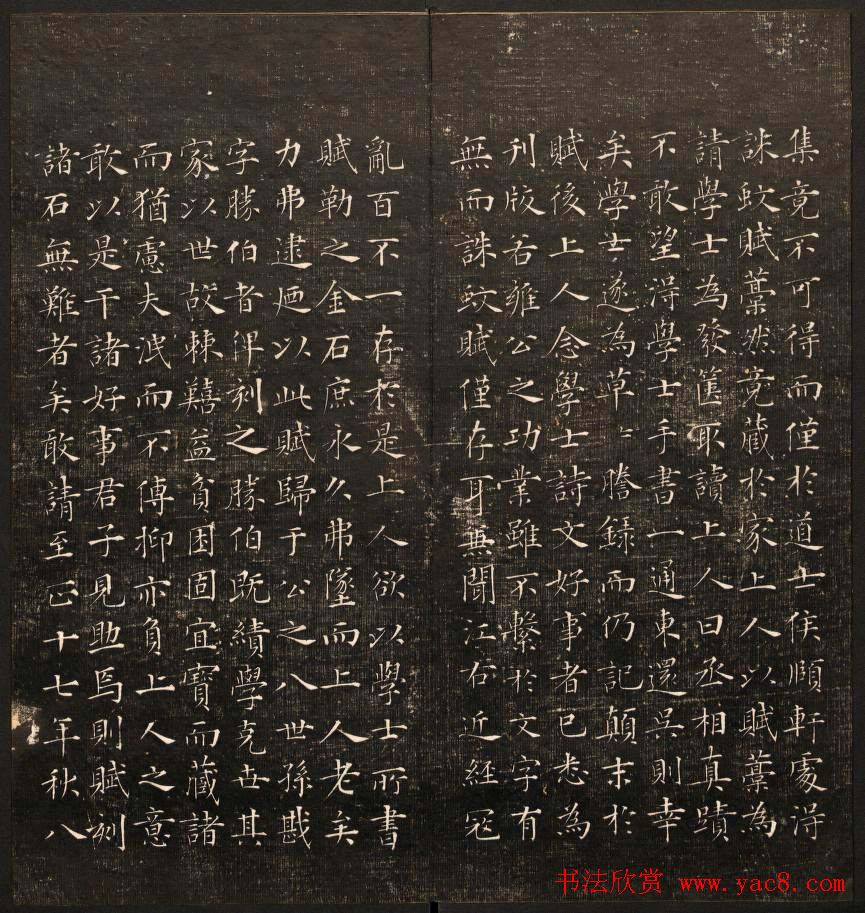 集竟不可得而僅於道士侯頤軒處得
誅蚊賦藁然竟藏於家上人以賦藁為
請學士為發篋取讀上人曰丞相真蹟
不敢望得學士手書一通東還吳則幸
矣學士遂為草〻謄錄而仍記顛末於
賦後上人念學士詩文好事者已悉為
刊版若雍公之功業雖不繫於文字有
無而誅蚊賦僅存耳兼聞江右近經寇
亂百不一存於是上人欲以學士所書
賦勒之金石庶永久弗墜而上人老矣
力弗逮廼以此賦歸于公之八世孫戡
字勝伯者俾刻之勝伯既績學克世其
家以世故棘囏益貧困固宜寶而藏諸
而猶慮夫泯而不傳抑亦負上人之意
敢以是干諸好事君子見助焉則賦刻
諸石無難者矣敢請至正十七年秋八
书法欣赏 www.yac8.com